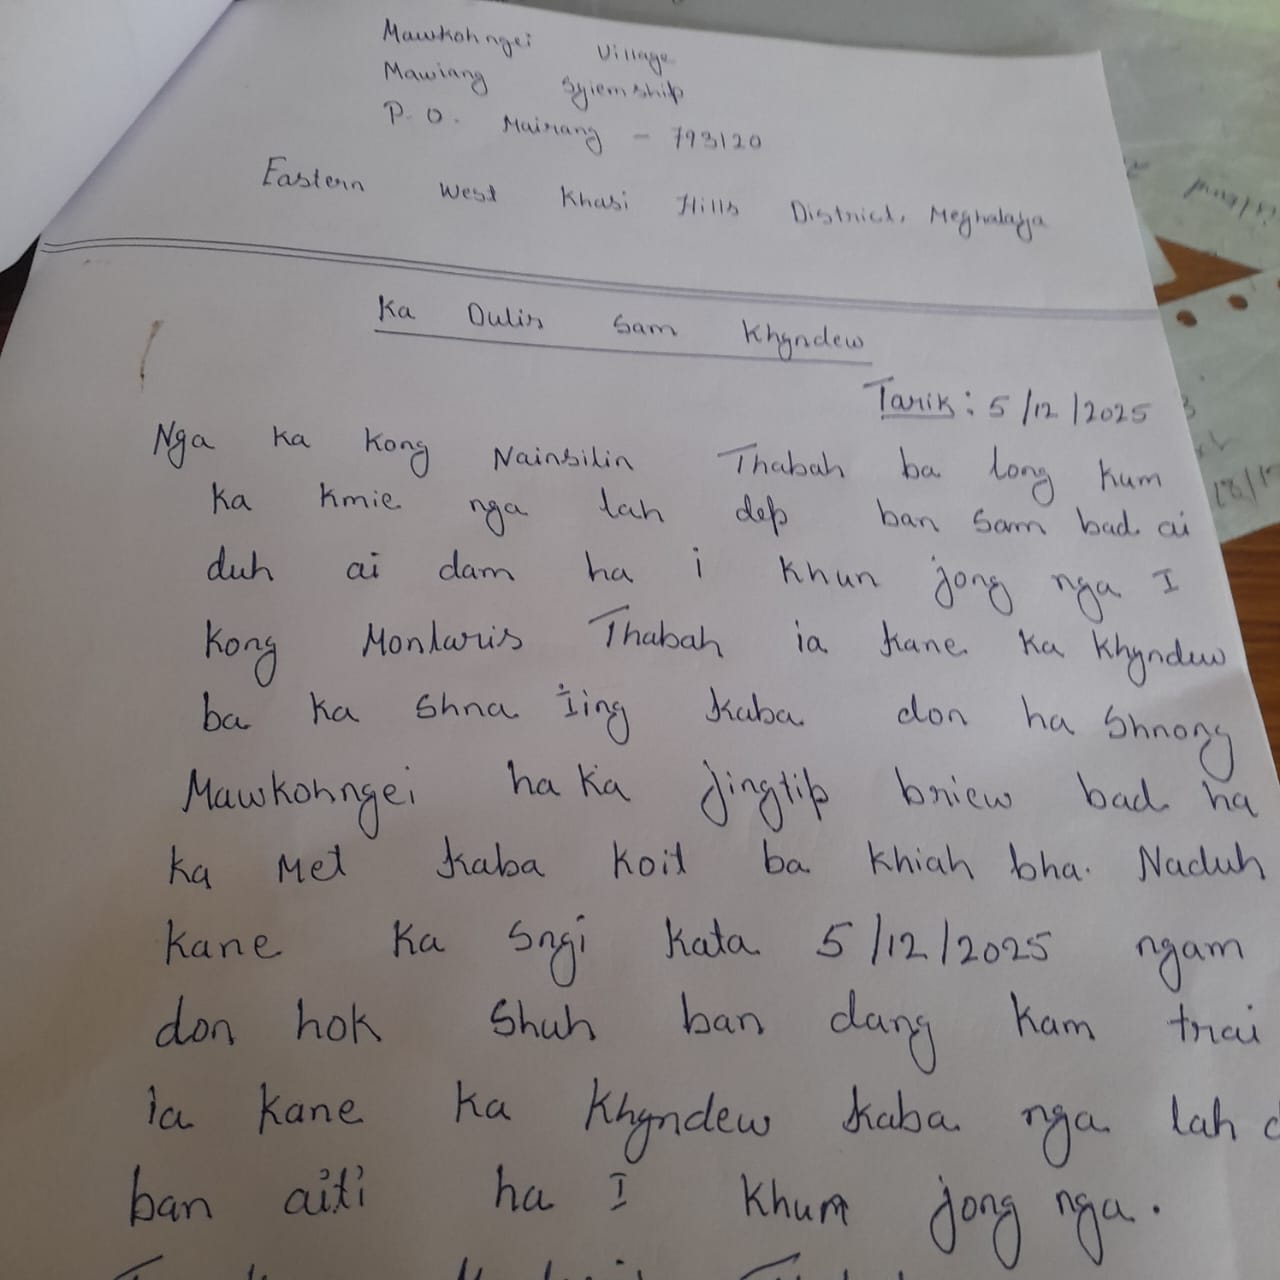 Mawkohngei Village
Mawiang Syiemship
P. O. Mairang - 793120
Eastern West Khasi Hills District, Meghalaya
Ka Dulir Sam Khyndew
Tarik: 5/12/2025
Nga ka Kong Nainsilin Thabah ba long kum
ka kmie nga lah dep ban sam bad ai
duh ai dam ha i khun jong nga I
Kong Monlaris Thabah ia kane ka khyndew
ba ka shna Ïing kaba don ha Shnong
Mawkohngei ha ka jingtip briew bad ha
ka Met kaba koit ba khiah bha. Naduh
kane ka sngi kata 5/12/2025 ngam
don hok shuh ban dang kam trai
ia kane ka khyndew kaba nga lah
ban aiti ha I khun jong nga.